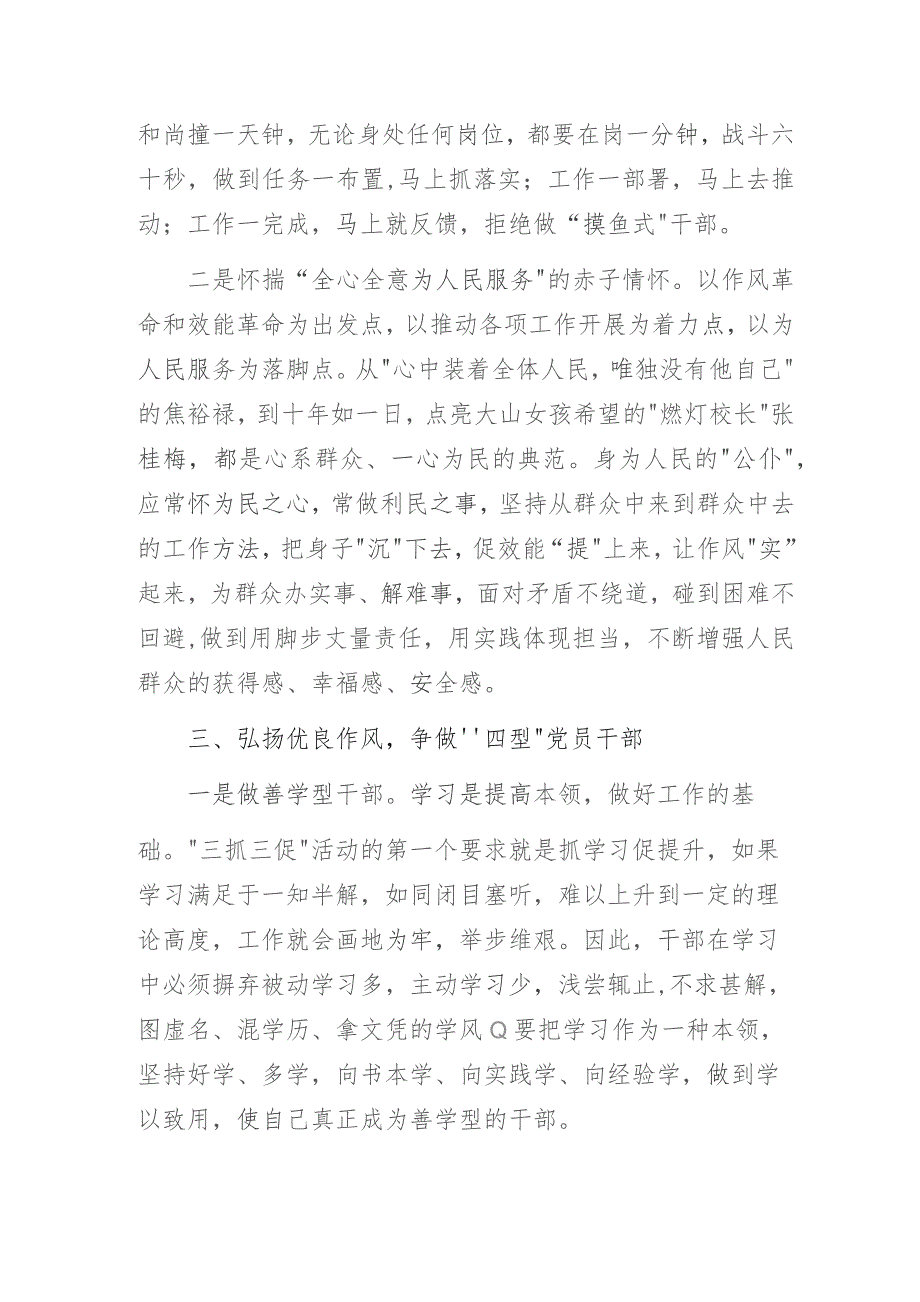 和尚撞一天钟，无论身处任何岗位，都要在岗一分钟，战斗六
十秒，做到任务一布置,马上抓落实；工作一部署，马上去推
动；工作一完成，马上就反馈，拒绝做“摸鱼式"干部。
二是怀揣“全心全意为人民服务"的赤子情怀。以作风革
命和效能革命为出发点，以推动各项工作开展为着力点，以为
人民服务为落脚点。从"心中装着全体人民，唯独没有他自己"
的焦裕禄，到十年如一日，点亮大山女孩希望的"燃灯校长"张
桂梅，都是心系群众、一心为民的典范。身为人民的"公仆"，
应常怀为民之心，常做利民之事，坚持从群众中来到群众中去
的工作方法，把身子"沉"下去，促效能“提"上来，让作风"实”
起来，为群众办实事、解难事，面对矛盾不绕道，碰到困难不
回避,做到用脚步丈量责任，用实践体现担当，不断增强人民
群众的获得感、幸福感、安全感。
三、弘扬优良作风，争做''四型"党员干部
一是做善学型干部。学习是提高本领，做好工作的基
础。"三抓三促"活动的第一个要求就是抓学习促提升，如果
学习满足于一知半解，如同闭目塞听，难以上升到一定的理
论高度，工作就会画地为牢，举步维艰。因此，干部在学习
中必须摒弃被动学习多，主动学习少，浅尝辄止,不求甚解，
图虚名、混学历、拿文凭的学风Q要把学习作为一种本领，
坚持好学、多学，向书本学、向实践学、向经验学，做到学
以致用，使自己真正成为善学型的干部。